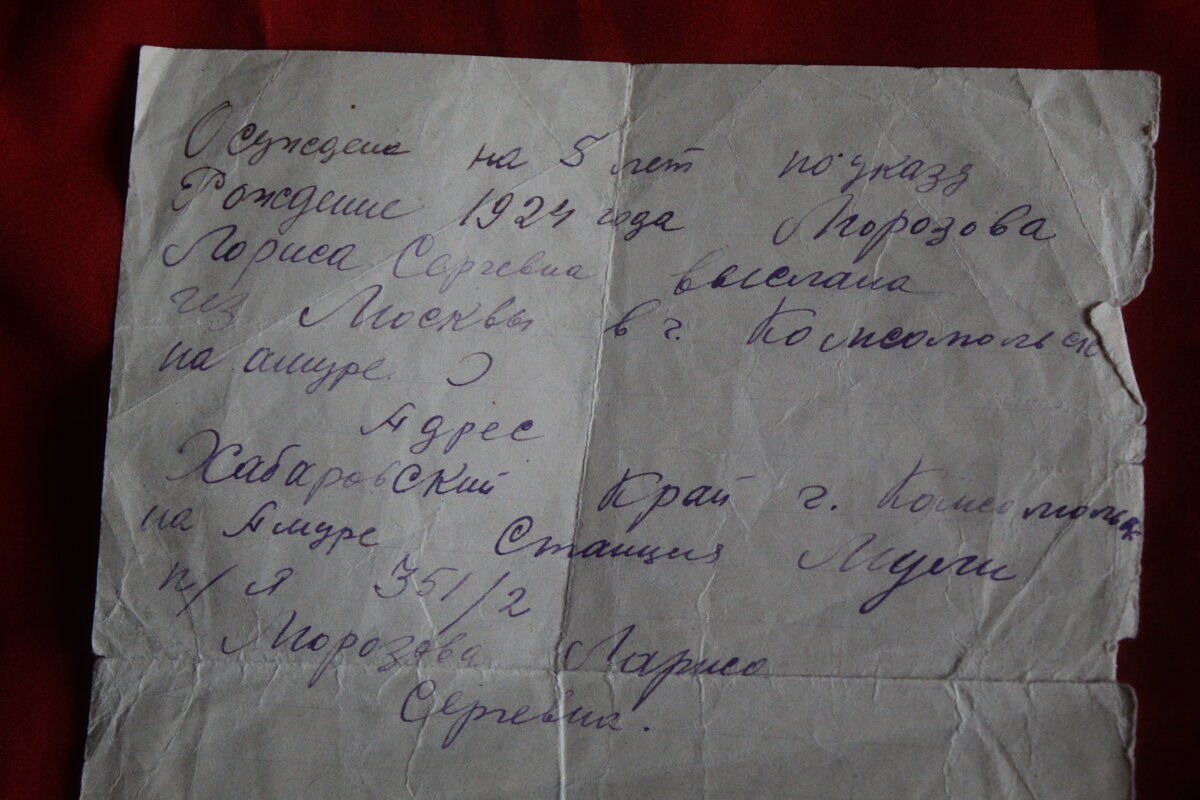 Осуждена на 5 лет по указу
Рождение 1924 года Морозова
Лориса Сергевна выслана
из Москвы в г. Комсомольск
на амуре
Адрес
Хабаровский Край г. Комсомольск
на Амуре Станция Мули
п/я 351/2
Морозова Лариса
Сергевна.